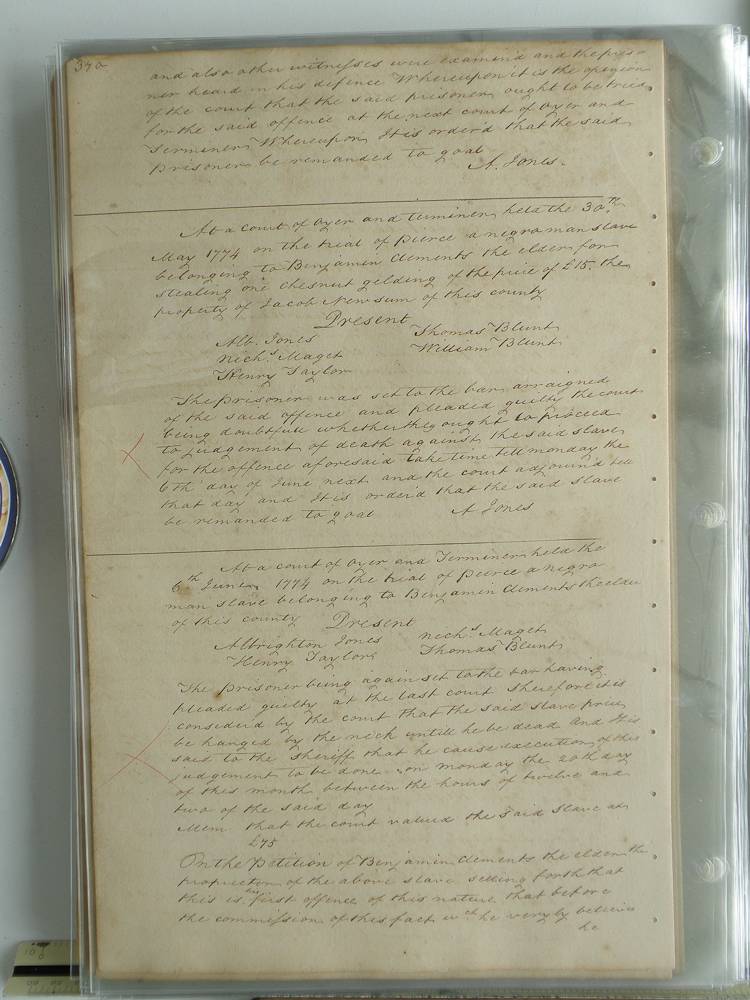 370
and also other witnesses were examind and the priso=
ner heard in his defence Whereupon it is the opinion
of the court that the said prisoner ought to be tried
for the said offence at the next court of Oyer and
Terminer Whereupon It is orderd that the said
Prisoner be remanded to goal
A. Jones.
At a court of Oyer and terminer held the 30th
May 1774 on the trial of Pierce a negro man slave
belonging to Benjamin Clements the elder for
stealing one chesnut gelding of the price of £15. the
property of Jacob Newsum of this county
Present
Alb. Jones Thomas Blunt
Nichs. Maget William Blunt
Henry Taylor
The prisoner was set to the bar arraigned
of the said offence and pleaded guilty the court
being doubtfull whether they ought to proceed
to judgement of death against the said slave
for the offence aforesaid take time till monday the
6th day of June next and the court adjournd till
that day and It is orderd that the said slave
be remanded to goal A Jones
At a court of Oyer and Terminer held the
6th June 1774 on the trial of Peirce a negro
man slave belonging to Benjamin Clements the elder
of this county Present
Albrighton Jones Nichs. Maget
Henry Taylor Thomas Blunt
The prisoner being again set to the bar having
pleaded guilty at the last court Therefore it is
considerd by the court that the said slave
be hanged by the neck untill he be dead And It is
said to the sheriff that he cause execution of this
judgement to be done on monday the 20th day
of this month between the hours of twelve and
two of the said day
Mem that the court valued the said slave at
£75
On the Petition of Benjamin Clements the elder the
proprietor of the above slave setting forth that
this is his first offence of this nature that before
the commission of this fact wch he veryly believes
he